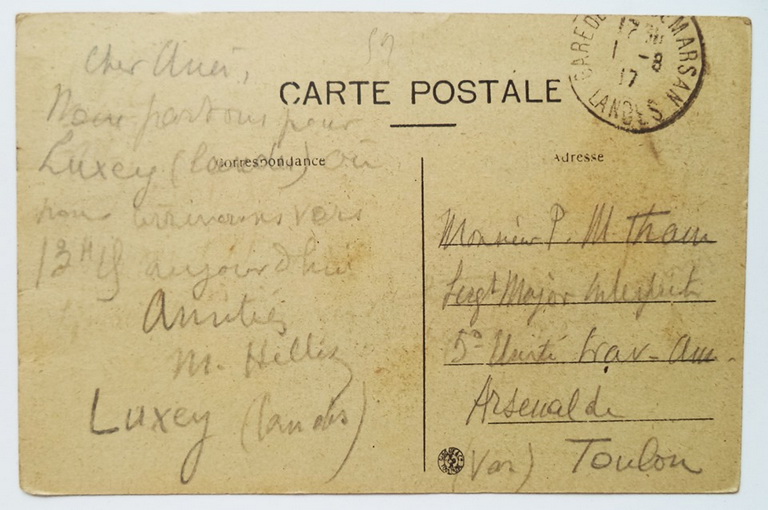 52
CARTE POSTALE
Correspondance
Adresse
GARE DE MARSAN
1 -8
17
LANDES
Cher Ami,
Nous partons pour
Luxey (Landes) où
nous arriverons vers
13H 15 aujourd'hui
Amitiés
M. Hellis
Luxey (Landes)
Monsieur P. M. Tham
Sergt Major Interprète
5e Unité Trav- Am.
Arsenal de
(Var) Toulon